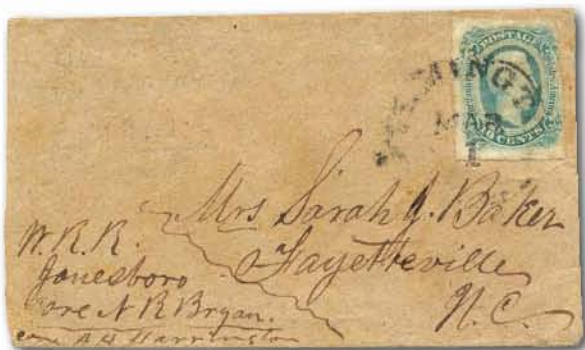 POSTAGE
MAR
1
CENTS
Mrs Sarah J. Baker
Fayetteville
N.C.
W.R.R.
Jonesboro
Care N R Bryan.
care A H Harrington